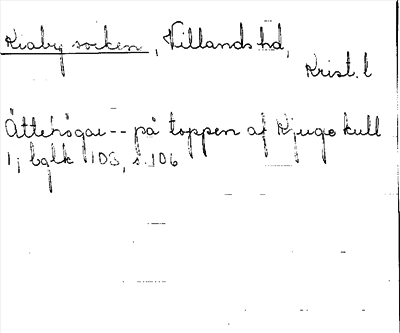 Kiaby socken, Villands hd,
Krist. l
Ättehögar -- på toppen af Kjuge kull
1, bglk 103, s. 106